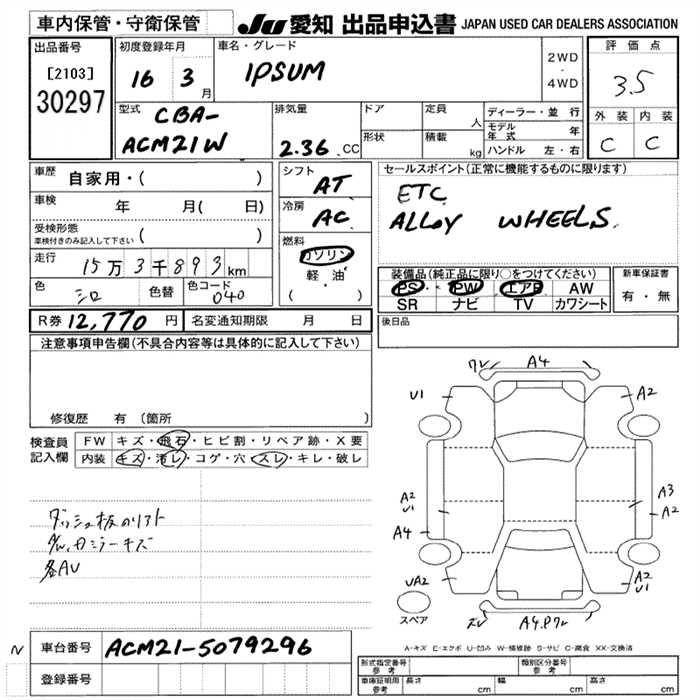 車内保管・守衛保管
JU 愛知 出品申込書 JAPAN USED CAR DEALERS ASSOCIATION
出品番号
[2103]
30297
初度登録年月
16 3 月
車名・グレード
IPSUM
2WD
・
4WD
評価点
3.5
外装 内装
C C
型式
CBA-
ACM21W
排気量
2.36 CC
ドア
形状
定員 人
積載 kg
ディーラー・並行
モデル年式 年
ハンドル 左・右
車歴 自家用・( )
車検 年 月( 日)
受検形態
車検付きのみ記入して下さい ( )
走行 15万3千893km
色 シロ 色替 色コード 040
シフト AT
冷房 AC
燃料
ガソリン
軽・油
( ・ )
セールスポイント(正常に機能するものに限ります)
ETC
ALLOY WHEELS.
装備品(純正品に限り○をつけてください)
PS PW エアB AW
SR ナビ TV カワシート
新車保証書
有・無
R券 12,770 円 名変通知期限 月 日
後日品
注意事項申告欄(不具合内容等は具体的に記入して下さい)
修復歴 有 (箇所 )
検査員記入欄
FW キズ・飛石・ヒビ割・リペア跡・X要
内装 キズ・汚レ・コゲ・穴・スレ・キレ・破レ
ダッシュ板のリフト
各AU
ワレ A4
U1 A2
A2
U1
A3
A2
A4
UA2 A2
U1
スペア
A4.Pワレ
A-キズ E-エクボ U-凹み W-補修跡 S-サビ C-腐食 XX-交換済
N 車台番号 ACM21-5079296
登録番号
形式指定番号
参考
類別区分番号
参考
車庫証明用
参考
長さ cm 幅 cm 高さ cm